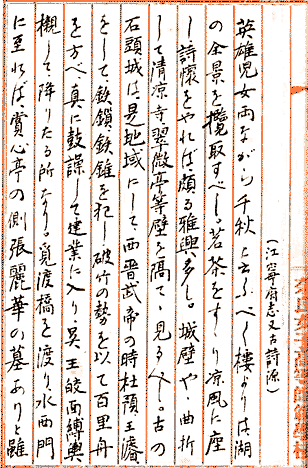 (江寧府志又古詩源)
英雄児女両ながら千秋と云ふべし楼よりは湖
の全景を攬取すべし。茗茶をすゝり涼風に座
し詩懐をやれば、頗る雅興多し。城壁や、曲折
して清凉寺翠微亭等壁を隔て、見るべし。古の
石頭城は是地域にして、西晋武帝の時杜預王濬
をして鉄鎖鉄錐を犯し破竹の勢を以て百里舟
を方べ真に鼓譟して建業に入り呉王皓面縛輿
櫬して降りたる所なり。覓渡橋を渡り水西門
に至れば、賞心亭の側張麗華の墓ありと雖